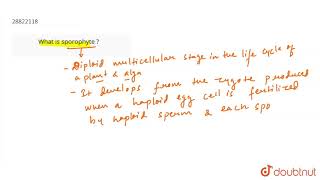 28822118
What is sporophyte ?
- Diploid multicellular stage in the life cycle of
a plant & alga
- It develops from the zygote produced
when a haploid egg cell is fertilized
by haploid sperm & each spo
doubtnut